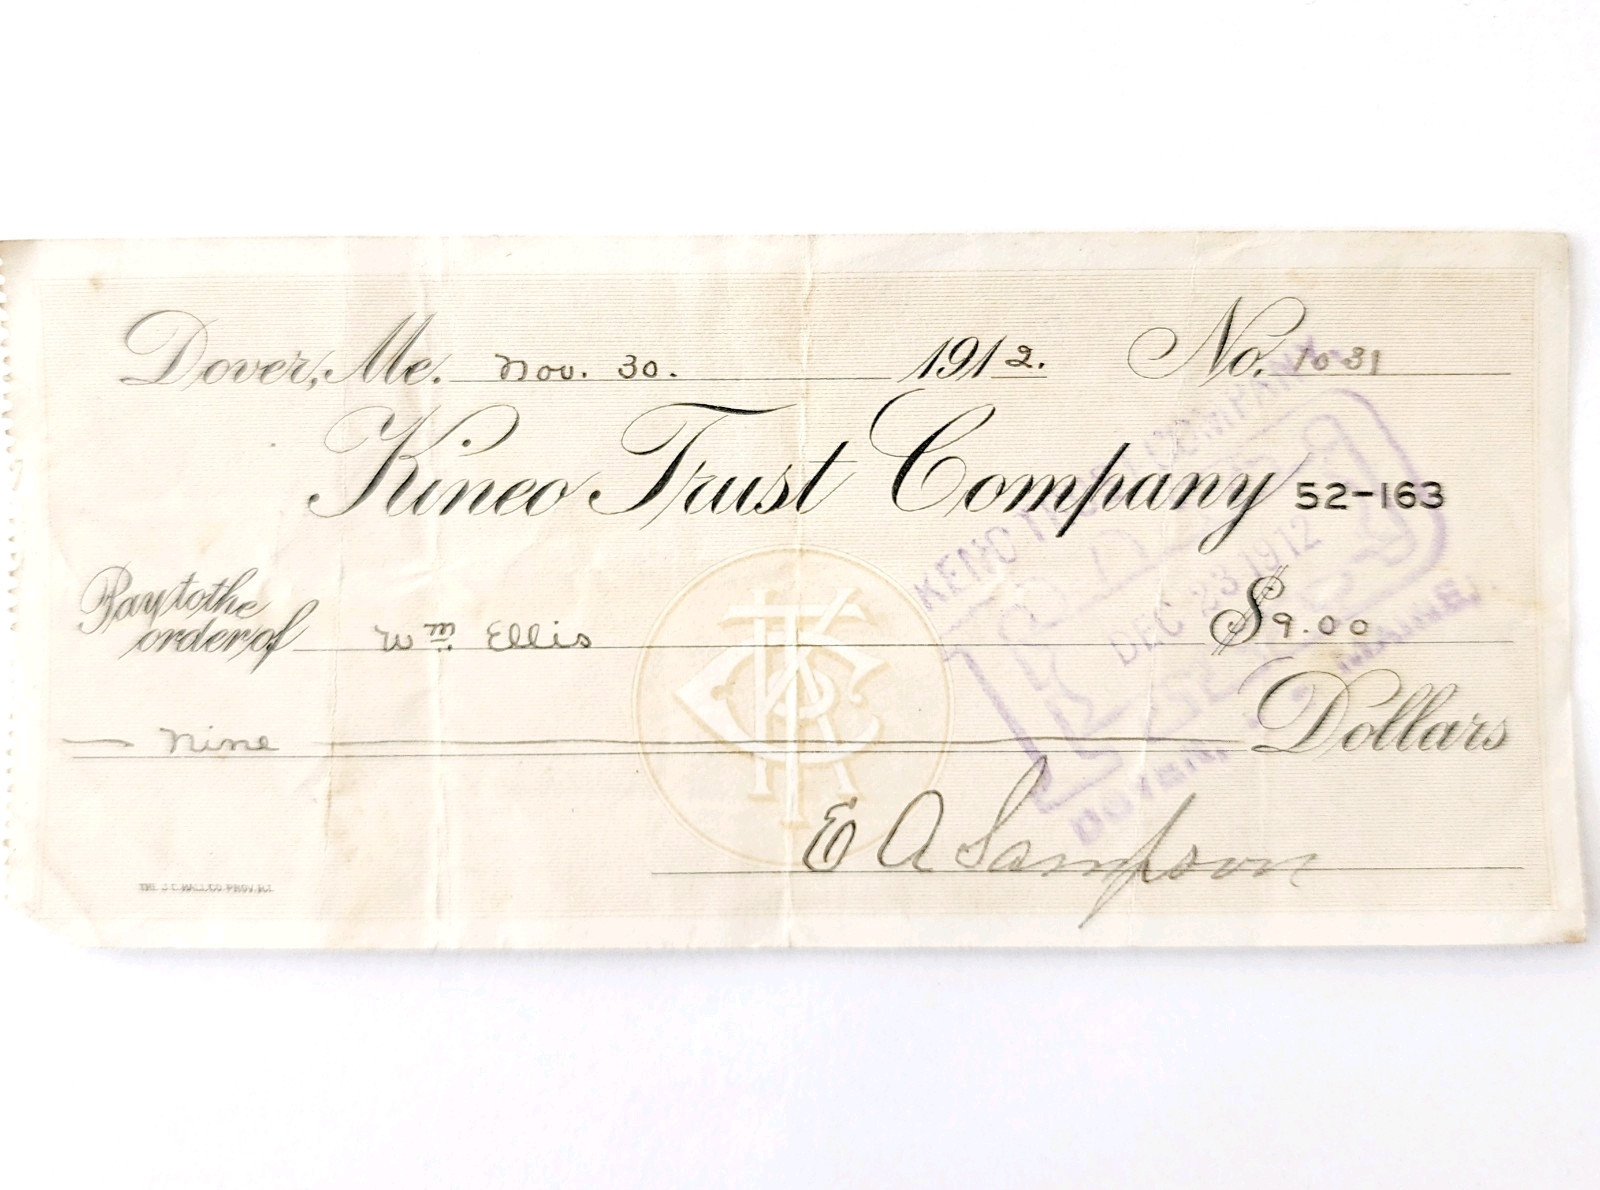 Dover, Me. Nov. 30. 1912. No. 1031
Kineo Trust Company 52-163
Pay to the
order of Wm. Ellis $9.00
Nine Dollars
E A Sampson
THE J.C. HALL CO. PROV. R.I.
COMPANY
DEC 23 1912
PAID
DOVER, MAINE